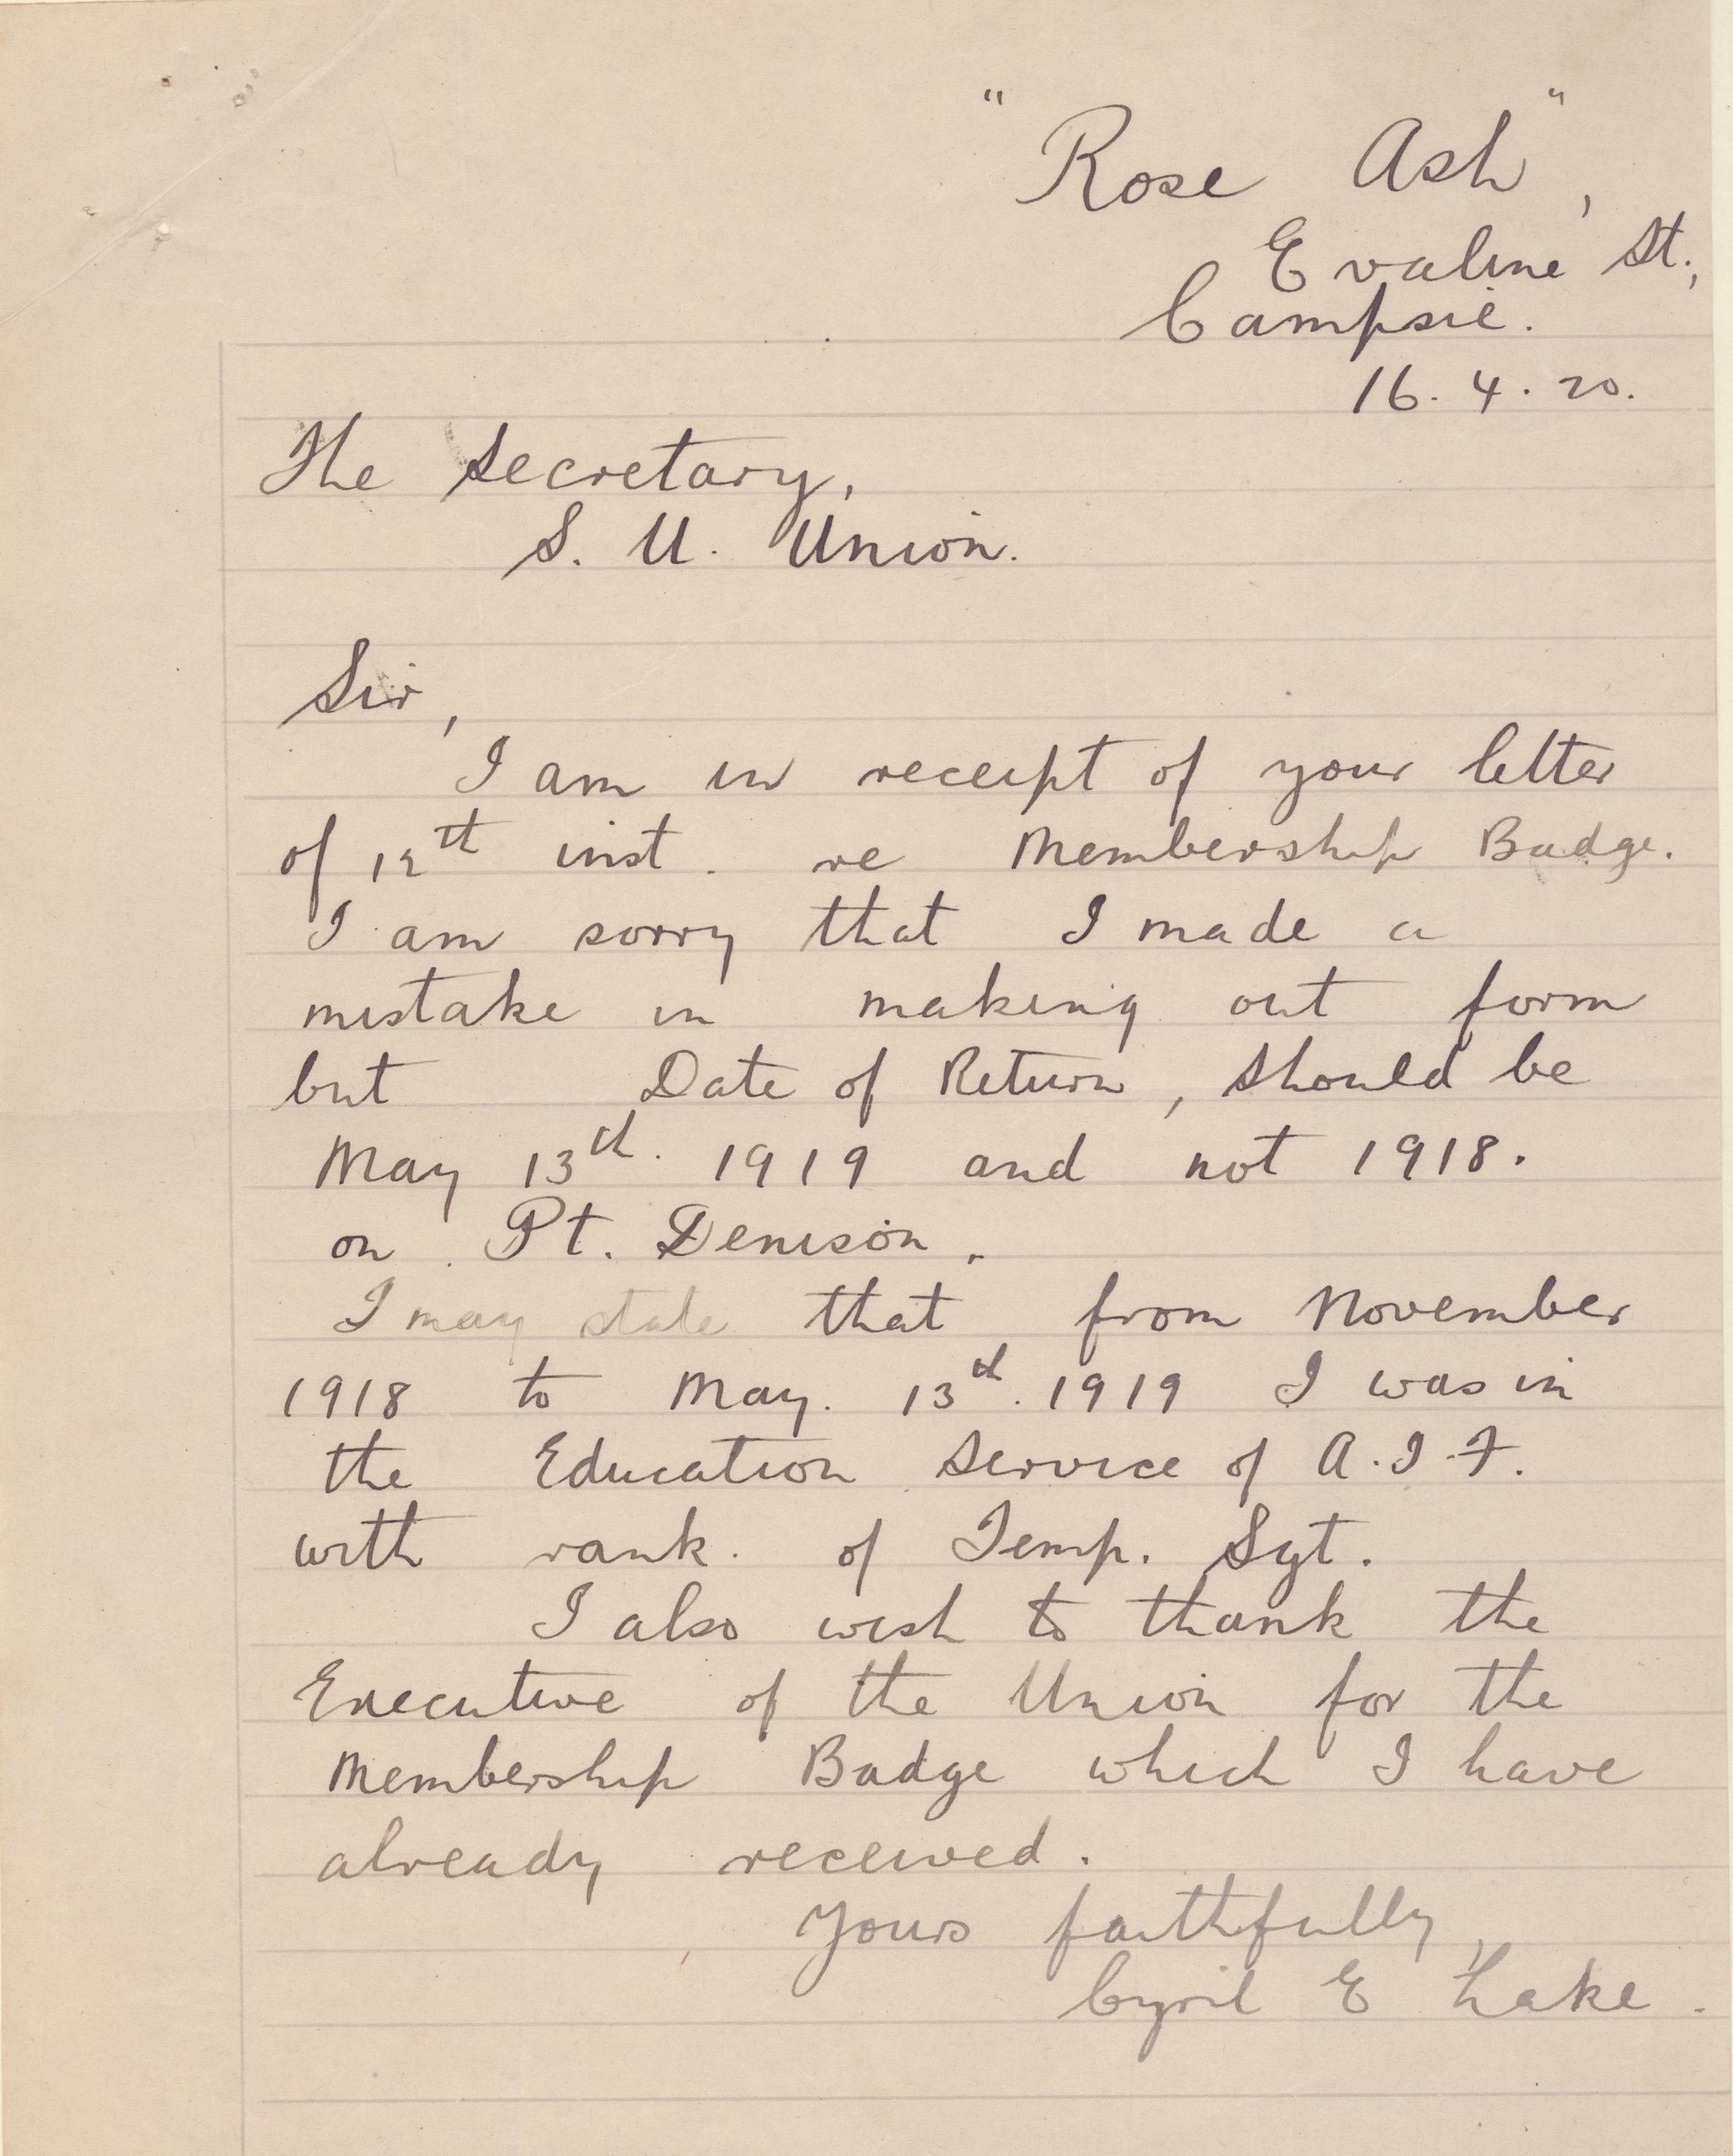 "Rose Ash",
Evaline St.,
Campsie.
16. 4. 20.
The Secretary,
S. U. Union.
Sir,
I am in receipt of your letter
of 12th inst. re Membership Badge.
I am sorry that I made a
mistake in making out form
but Date of Return, should be
May 13th. 1919 and not 1918.
on Pt. Denison.
I may state that from November
1918 to May. 13th. 1919 I was in
the Education Service of A.I.F.
with rank. of Temp. Sgt.
I also wish to thank the
Executive of the Union for the
Membership Badge which I have
already received.
Yours faithfully,
Cyril E Lake.